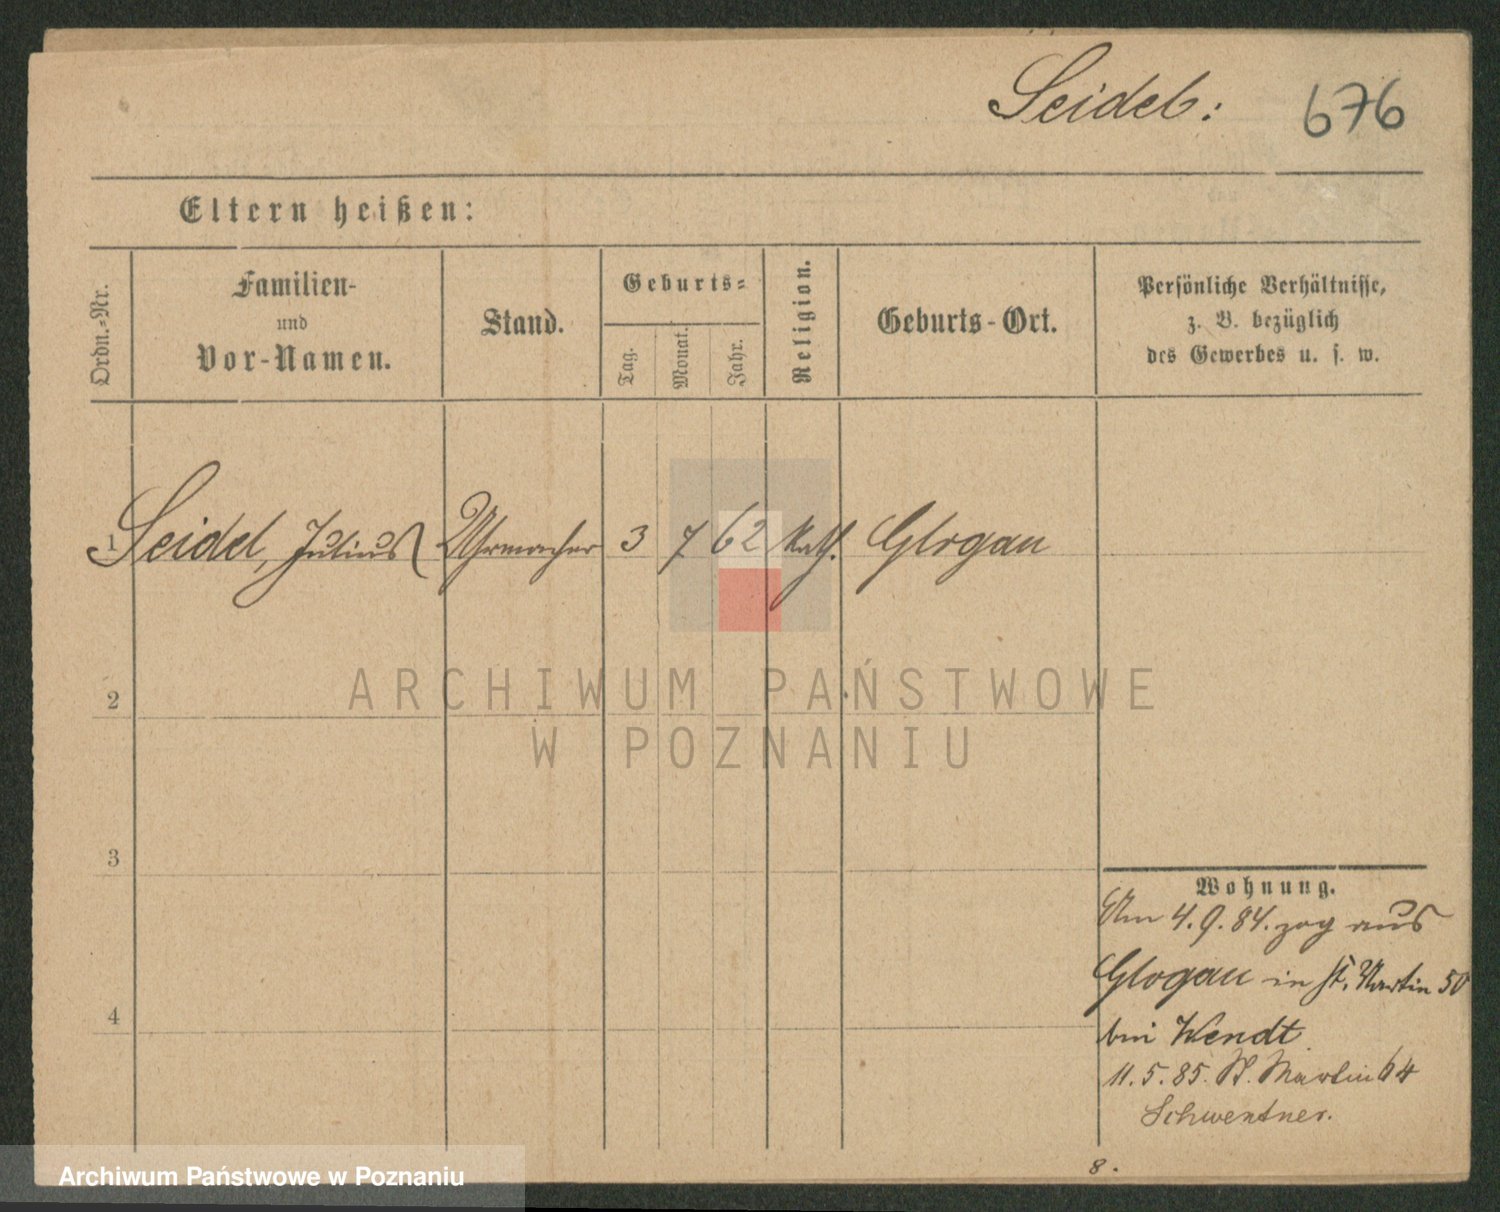 Seidel: 676
Eltern heißen:
Ordn.-Nr.
Familien-
und
Vor-Namen.
Stand.
Geburts-
Tag.
Monat.
Jahr.
Religion.
Geburts-Ort.
Persönliche Verhältnisse,
z. B. bezüglich
des Gewerbes u. s. w.
1 Seidel, Julius Uhrmacher 3 7 62 kath. Glogau
2
3
4
Wohnung.
Am 4.9.84. zog aus
Glogau in St. Martin 50
bei Wendt
11.5.85. St. Martin 64
Schwentner.
8.
ARCHIWUM PAŃSTWOWE
W POZNANIU
Archiwum Państwowe w Poznaniu